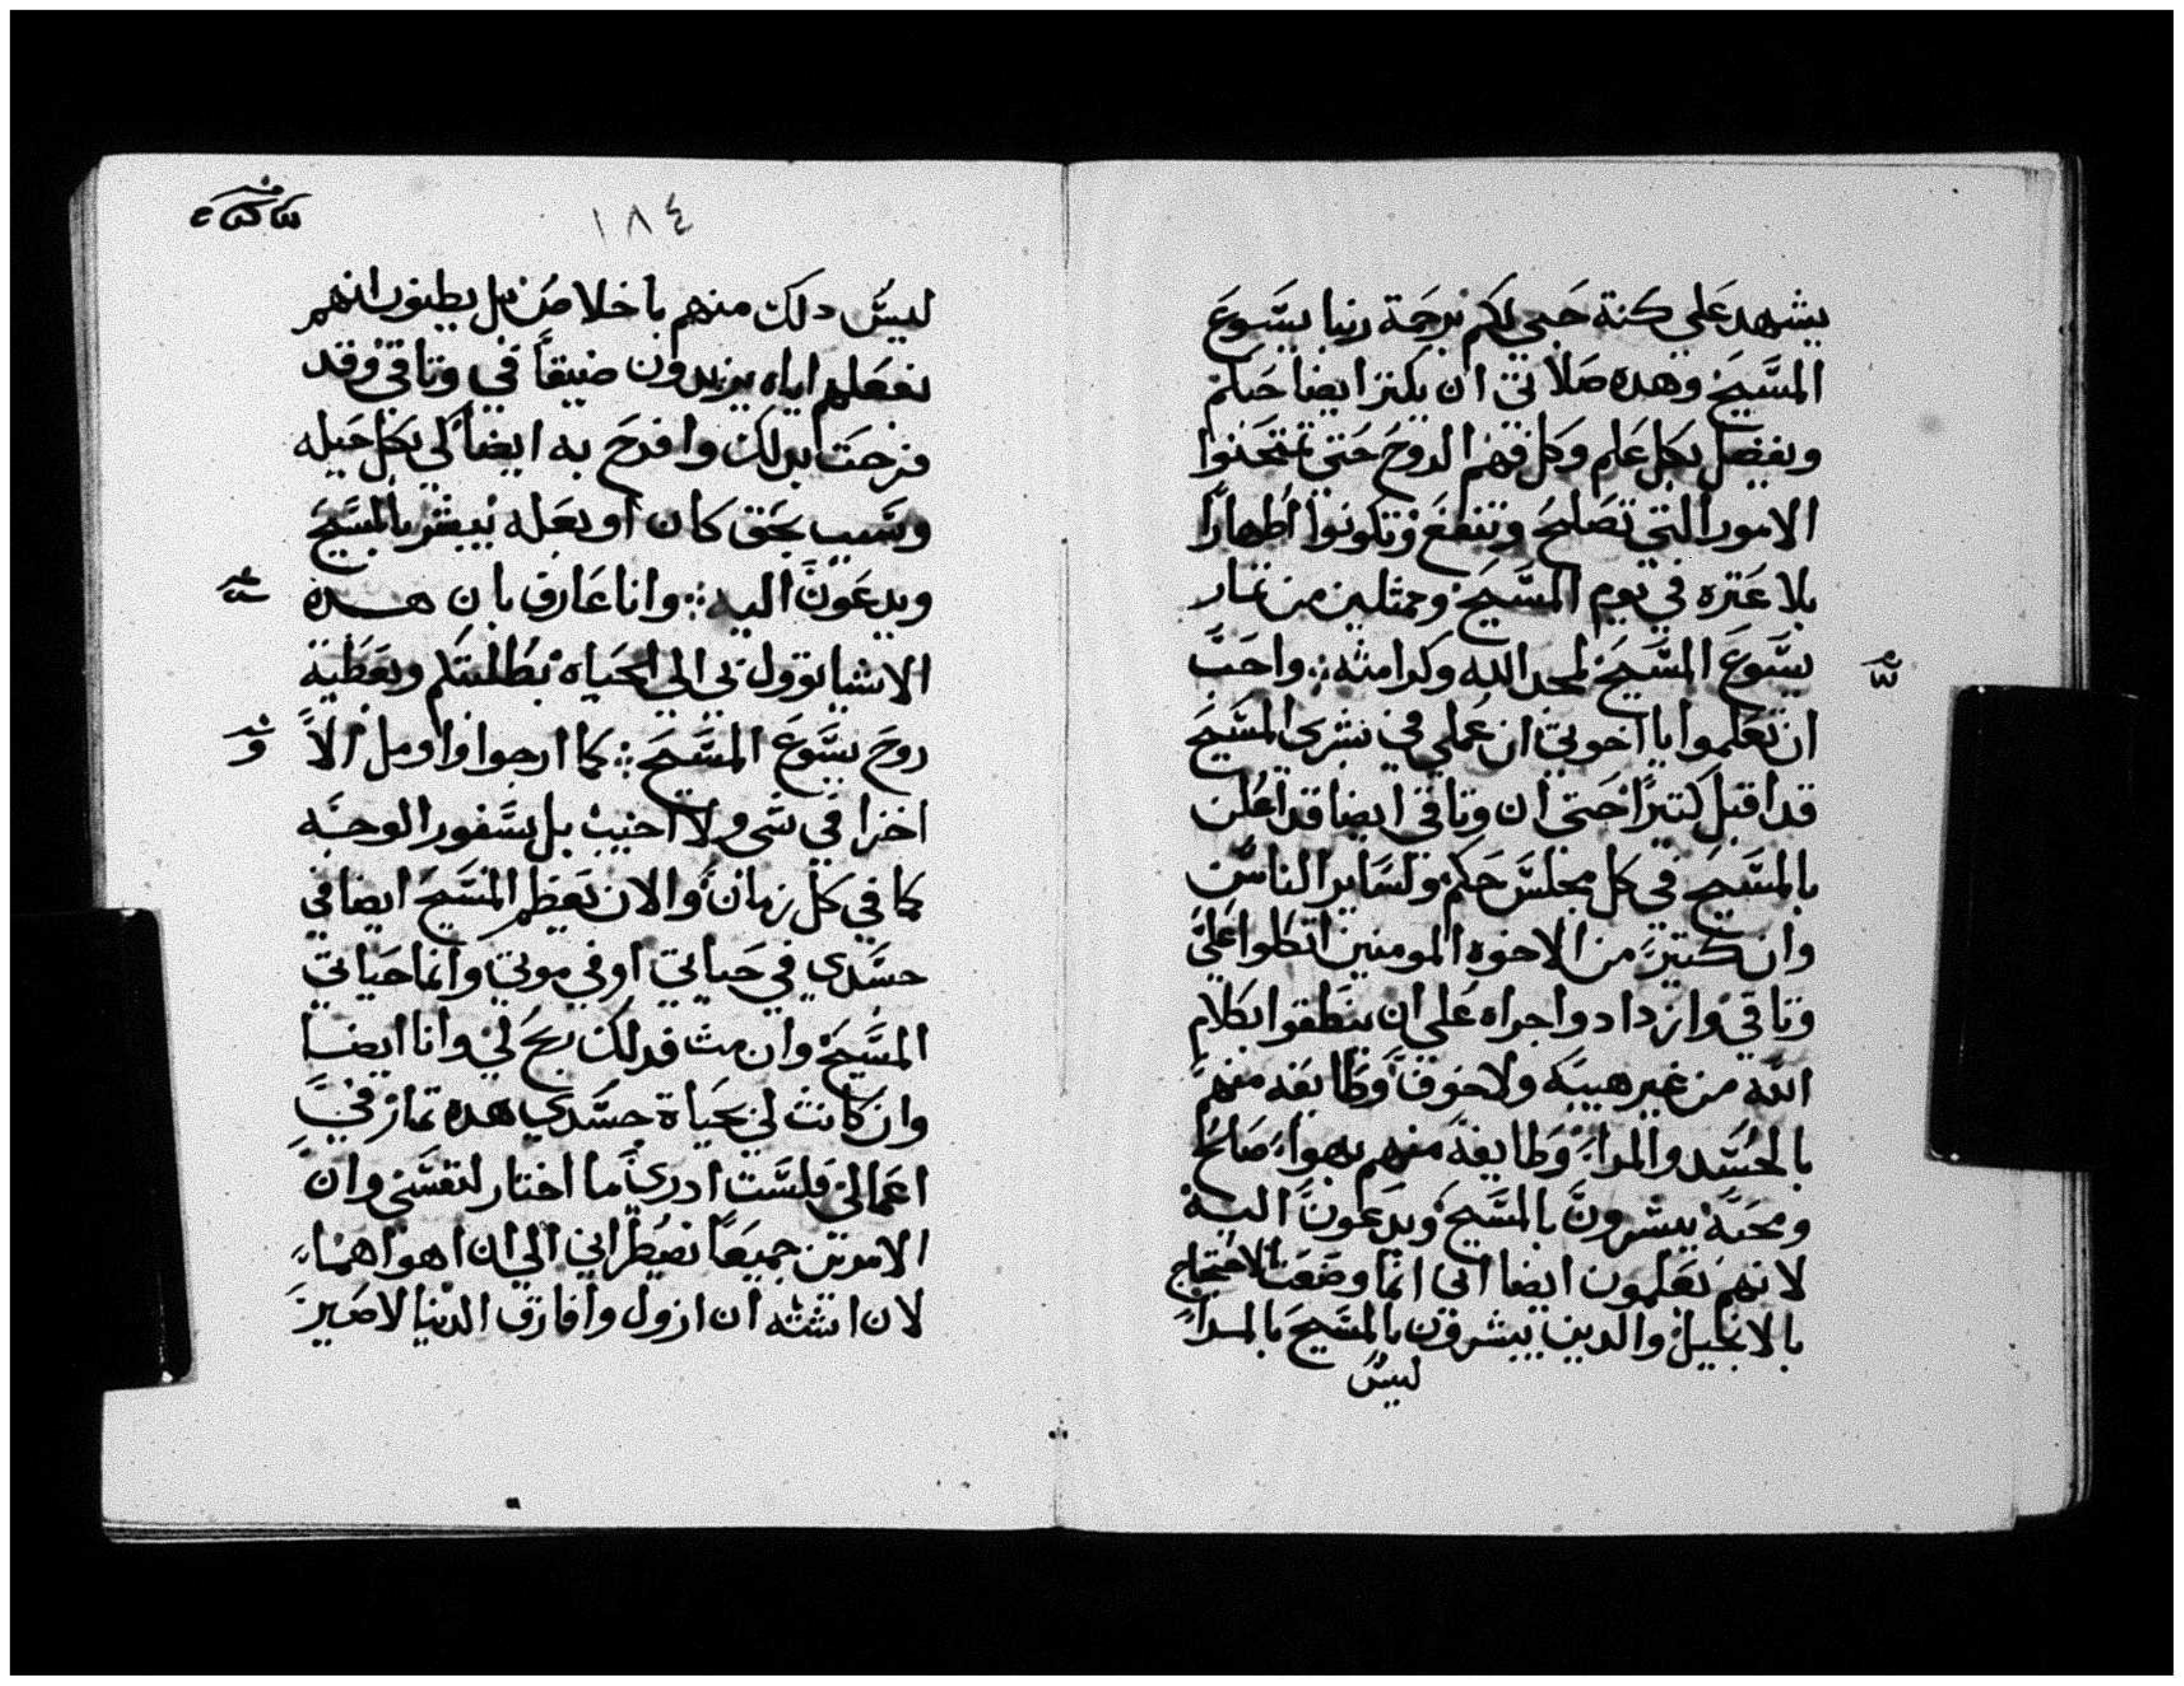 يشهد علي كنة حبي لكم برحمة ربنا يسوع
المسيح وهده صلاتي ان يكتر ايضا حبكم
ويفضل بكل علم وكل فهم الروح حتي تمتحنوا
الامور التي تصلح وتنفع وتكونوا اطهارا
بلا عتره في يوم المسيح وممتلين من تمار
يسوع المسيح لمجد الله وكرامته ۞ واحب
ان تعلموا يا اخوتي ان عملي في بشري المسيح
قد اقبل كتيرا حتي ان وتاقي ايضا قد اعلن
بالمسيح في كل مجلس حكم ولساير الناس
وان كتير من الاخوه المومنين اتكلوا علي
وتاقي وازدادوا جراه علي ان ينطقوا بكلام
الله من غير هيبه ولا خوف وطايفه منهم
بالحسد والمراء وطايفة منهم بهواء صالح
ومحبة يبشرون بالمسيح ويدعون اليه
لانهم يعلمون ايضا اني انما وضعت للاحتجاج
بالانجيل والدين يبشرون بالمسيح بالمراء
ليس
١٨٤
ليس دلك منهم باخلاص بل يظنون انهم
بفعلهم اياه يزيدون ضيقا في وتاقي وقد
فرحت بدلك وافرح به ايضا لي بكل حيله
وسبب بحق كان او بعله يبشر بالمسيح
ويدعون اليه ۞ وانا عارف بان هده
الاشيا توول بي الي الحياه بطلبتكم وبعطية
روح يسوع المسيح ۞ كما ارجوا واومل الا
اخزا في شي ولا اخيب بل بسفور الوجه
كما في كل زمان والان يعظم المسيح ايضا في
جسدي في حياتي او في موتي وانما حياتي
المسيح وان مت فدلك ربح لي وانا ايضا
وان كانت لي بحياة جسدي هده تمار في
اعمالي فلست ادري ما اختار لنفسي وان
الامرين جميعا تضطراني الي ان اهواهما
لان اشته ان ازول وافارق الدنيا لاصير